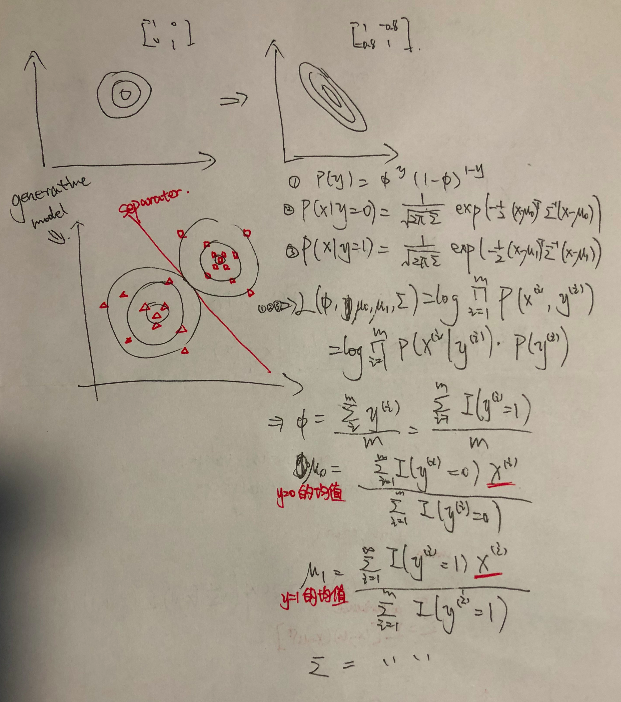 [1 0
0 1]
[1 -0.8
-0.8 1].
⇒
generative
model
⇓
separator.
① P(y) = φ^y (1-φ)^{1-y}
② P(x|y=0) = 1/√(2πΣ) exp(-1/2 (x-μ₀)ᵀ Σ⁻¹ (x-μ₀))
③ P(x|y=1) = 1/√(2πΣ) exp(-1/2 (x-μ₁)ᵀ Σ⁻¹ (x-μ₁))
①②③⇒ L(φ, μ₀, μ₁, Σ) = log ∏_{i=1}^{m} P(x^{(i)}, y^{(i)})
= log ∏_{i=1}^{m} P(x^{(i)} | y^{(i)}) · P(y^{(i)})
⇒ φ = ∑_{i}^{m} y^{(i)} / m = ∑_{i=1}^{m} I(y^{(i)}=1) / m
μ₀ = ∑_{i=1}^{m} I(y^{(i)}=0) x^{(i)} / ∑_{i=1}^{m} I(y^{(i)}=0)
y=0的均值
μ₁ = ∑_{i=1}^{m} I(y^{(i)}=1) x^{(i)} / ∑_{i=1}^{m} I(y^{(i)}=1)
y=1的均值
Σ = " "